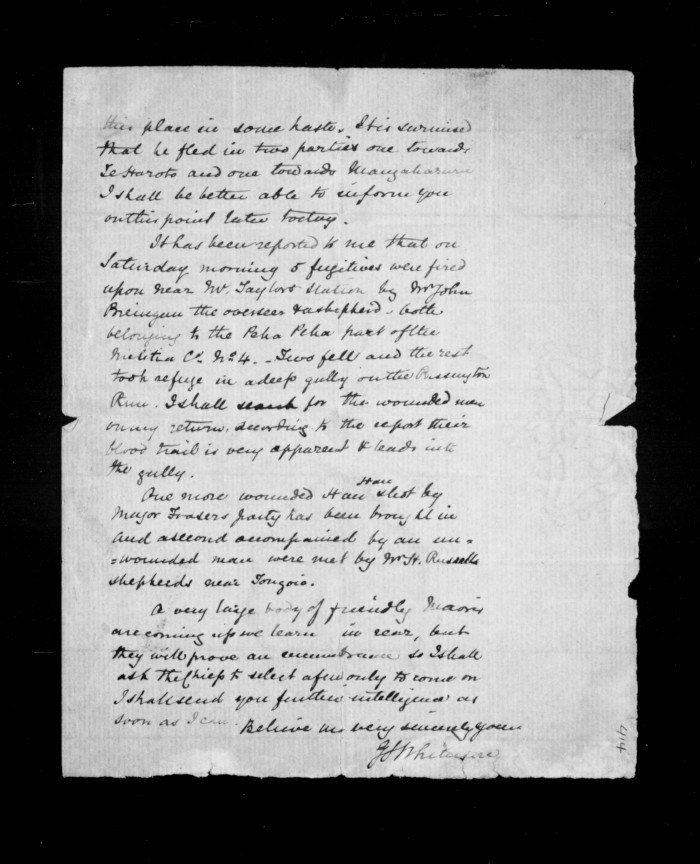 this place in some haste. It is surmised
that he fled in two parties one towards
Te Haroto and one towards Mangaharuru
I shall be better able to inform you
on this point later today.
It has been reported to me that on
Saturday morning 5 fugitives were fired
upon near Mr. Taylors station by Mr John
the overseer & a shepherd, both
belonging to the Peka Peka part of the
Militia Co. No 4. - Two fell and the rest
took refuge in a deep gully on the Rissington
Run. I shall search for the wounded man
on my return, according to the report their
blood trail is very apparent & leads into
the gully.
One more wounded Hau Hau shot by
Major Frasers party has been brought in
and a second accompanied by an un=
=wounded man were met by Mr H. Russells
shepherds near Tongoio.
A very large body of friendly Maoris
are coming up we learn in rear, but
they will prove an so I shall
ask the Chiefs to select a few only to come on
I shall send you further intelligence as
soon as I can. Believe me very sincerely yours
G S Whitmore
414